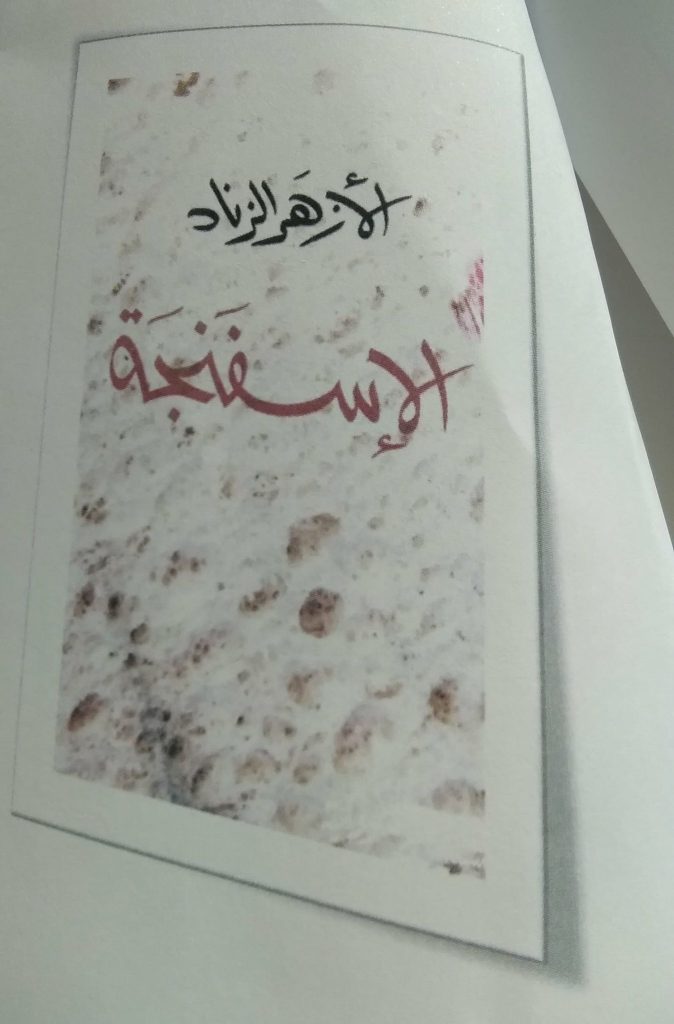 الأزهَر الزناد
الإسفَنجَة